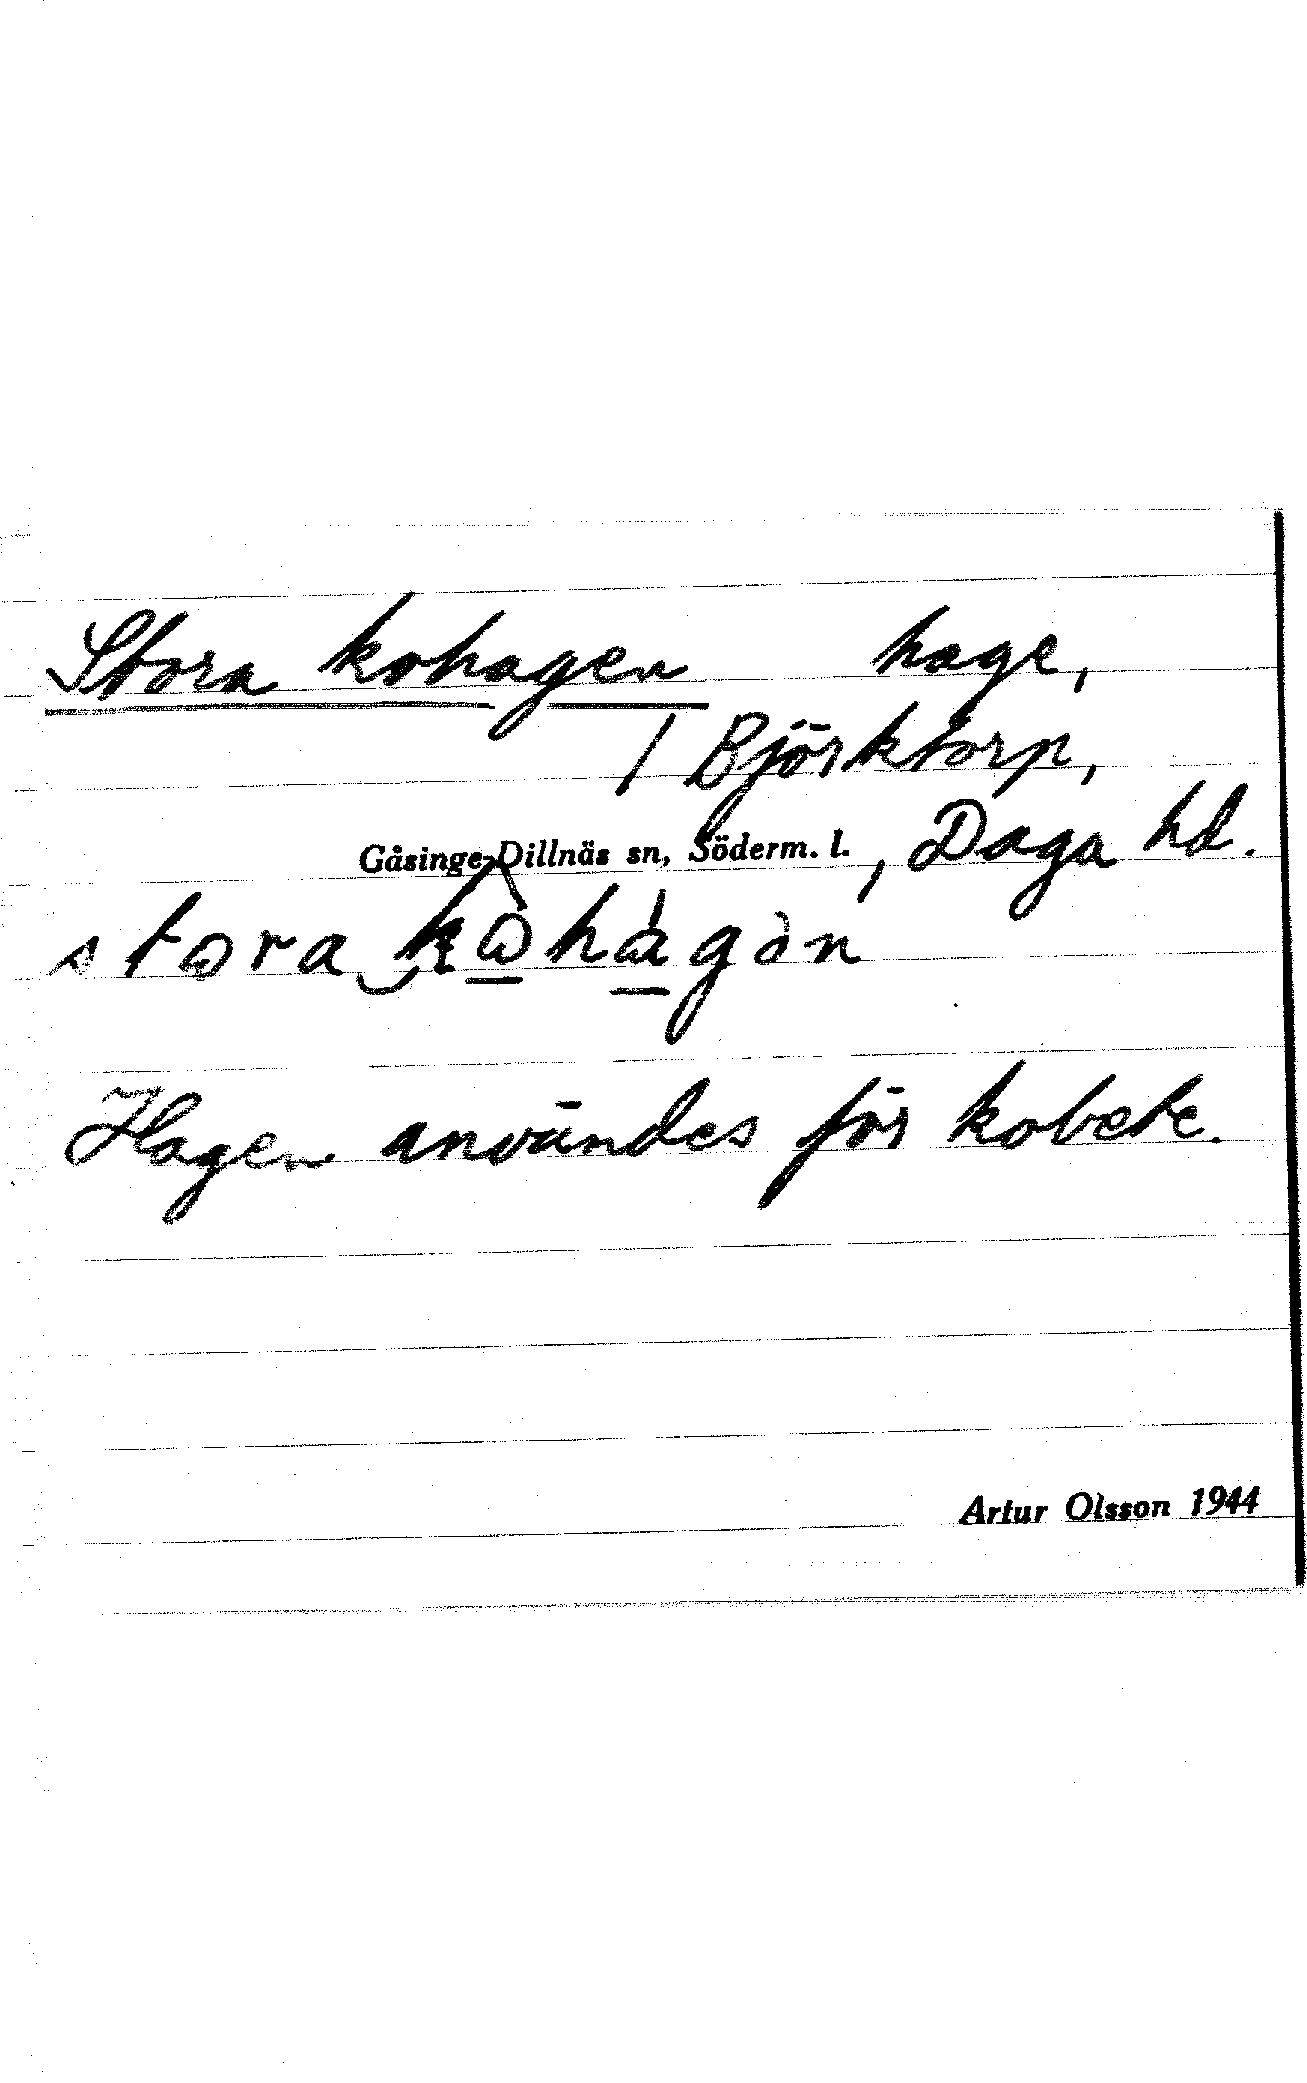 Stora kohagen hage,
/ Björktorp,
Gåsinge-Dillnäs sn, Söderm. l., Daga hd.
Hagen användes för kobete.
Artur Olsson 1944